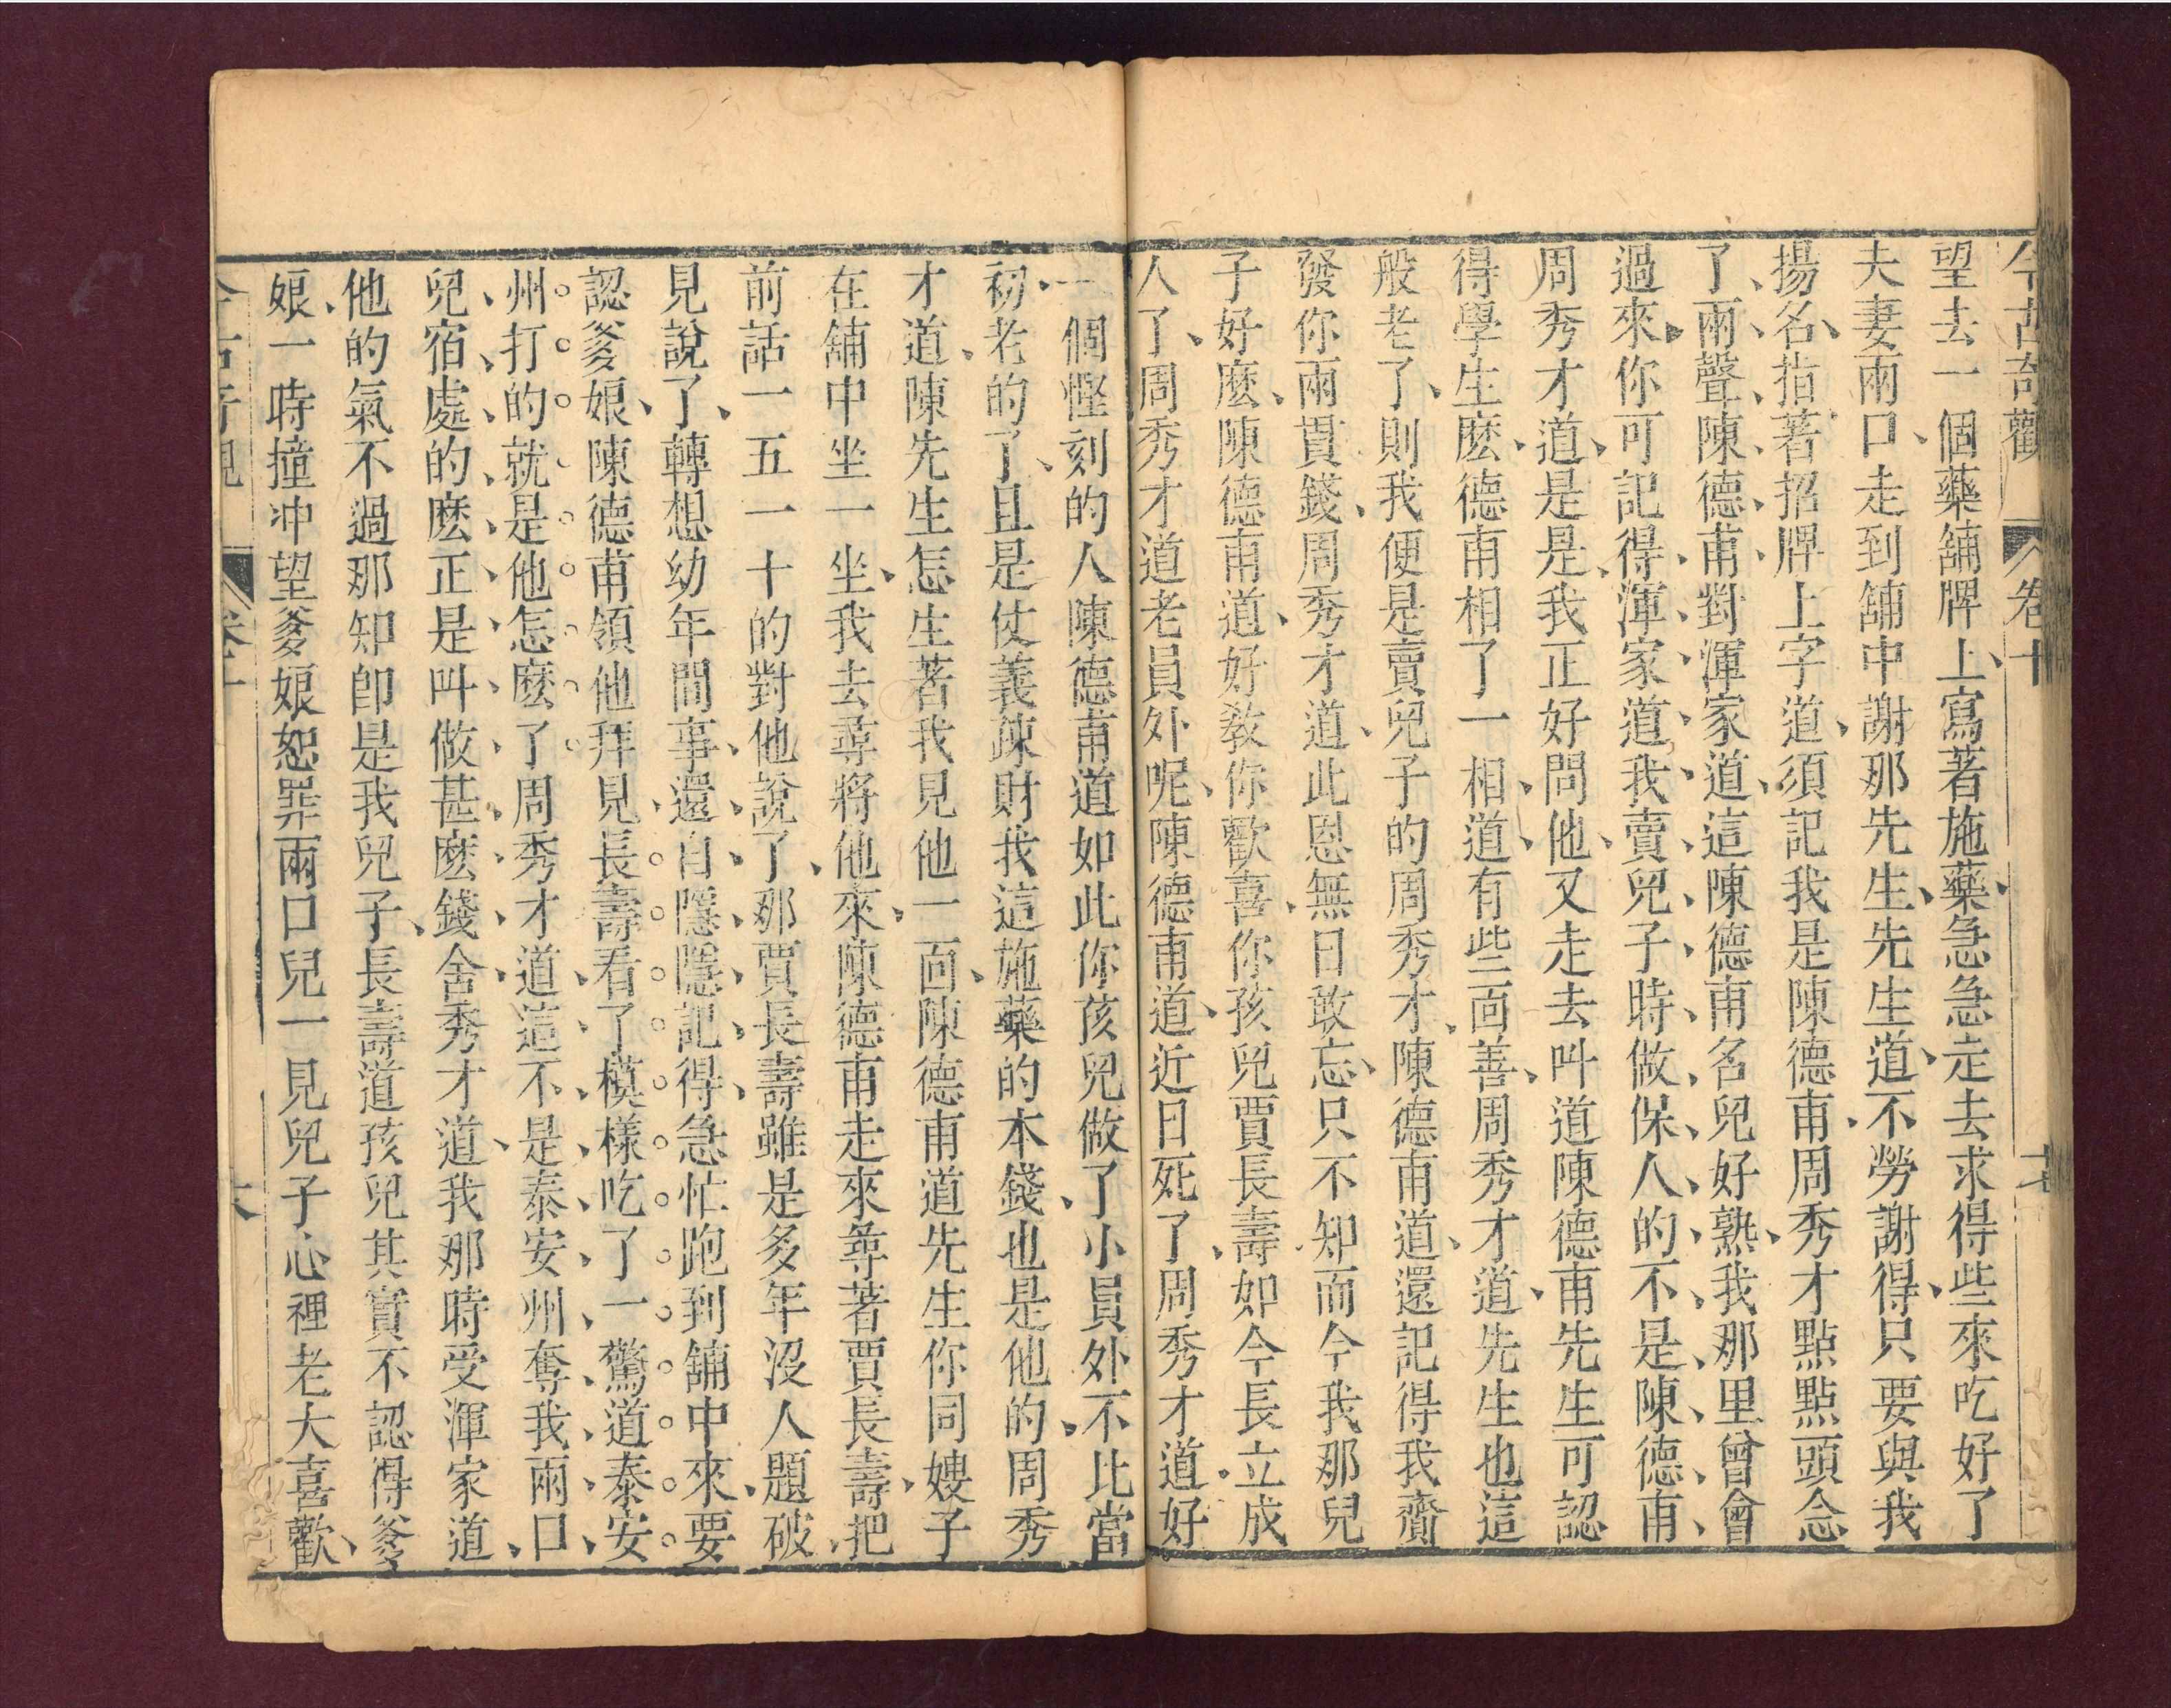 今古奇觀 卷十 十七
望去一個藥舖牌上、寫著施藥、急急走去求得些來吃好了
夫妻兩口、走到舖中謝那先生、先生道、不勞謝得、只要與我
揚名、指著招牌上字道、須記我是陳德甫、周秀才點點頭念
了、兩、聲、陳、德、甫、對渾家道、這陳德甫名兒好熟、我那里曾會
過來、你可記得、渾、家、道、我、賣、兒、子、時、做、保、人、的、不、是、陳、德、甫、
周秀才道、是是、我正好問他、又走去叫道陳德甫先生可認
得學生麽、德甫相了一相、道、有些面善、周秀才道、先生也這
般老了、則我便是賣兒子的周秀才、陳德甫道、還記得我齎
發你兩貫錢、周秀才道、此恩無日敢忘、只不知而今我那兒
子好麽、陳德甫道、好敎你歡喜、你孩兒賈長壽如今長立成
人了、周秀才道老員外呢、陳德甫道、近日死了、周秀才道好
一個慳刻的人陳德甫道如此你孩兒做了小員外不比當
初、老的了、且是仗義疎財我這施藥的本錢、也是他的、周秀
才道、陳先生怎生著我見他一面、陳德甫道先生你同嫂子
在舖中坐一坐、我去尋將他來、陳德甫走來尋著賈長壽、把
前話一五一十的對他說了、那賈長壽雖是多年沒人題破、
見說了、轉想幼年間事、還、自、隱、隱、記、得、急忙跑到舖中來、要
認爹娘、陳德甫領他拜見、長壽看了模樣吃了一驚道泰安
州打的就是他怎麽了周秀才道、這、不、是、泰、安、州、奪、我、兩、口、
兒、宿、處、的、麽、正、是、叫、做、甚、麽、錢、舍、秀才道、我那時受渾家道、
他的氣不過那知卽是我兒子、長壽道孩兒其實不認得爹
娘、一時撞冲望爹娘恕罪兩口兒一見兒子心裡老大喜歡、